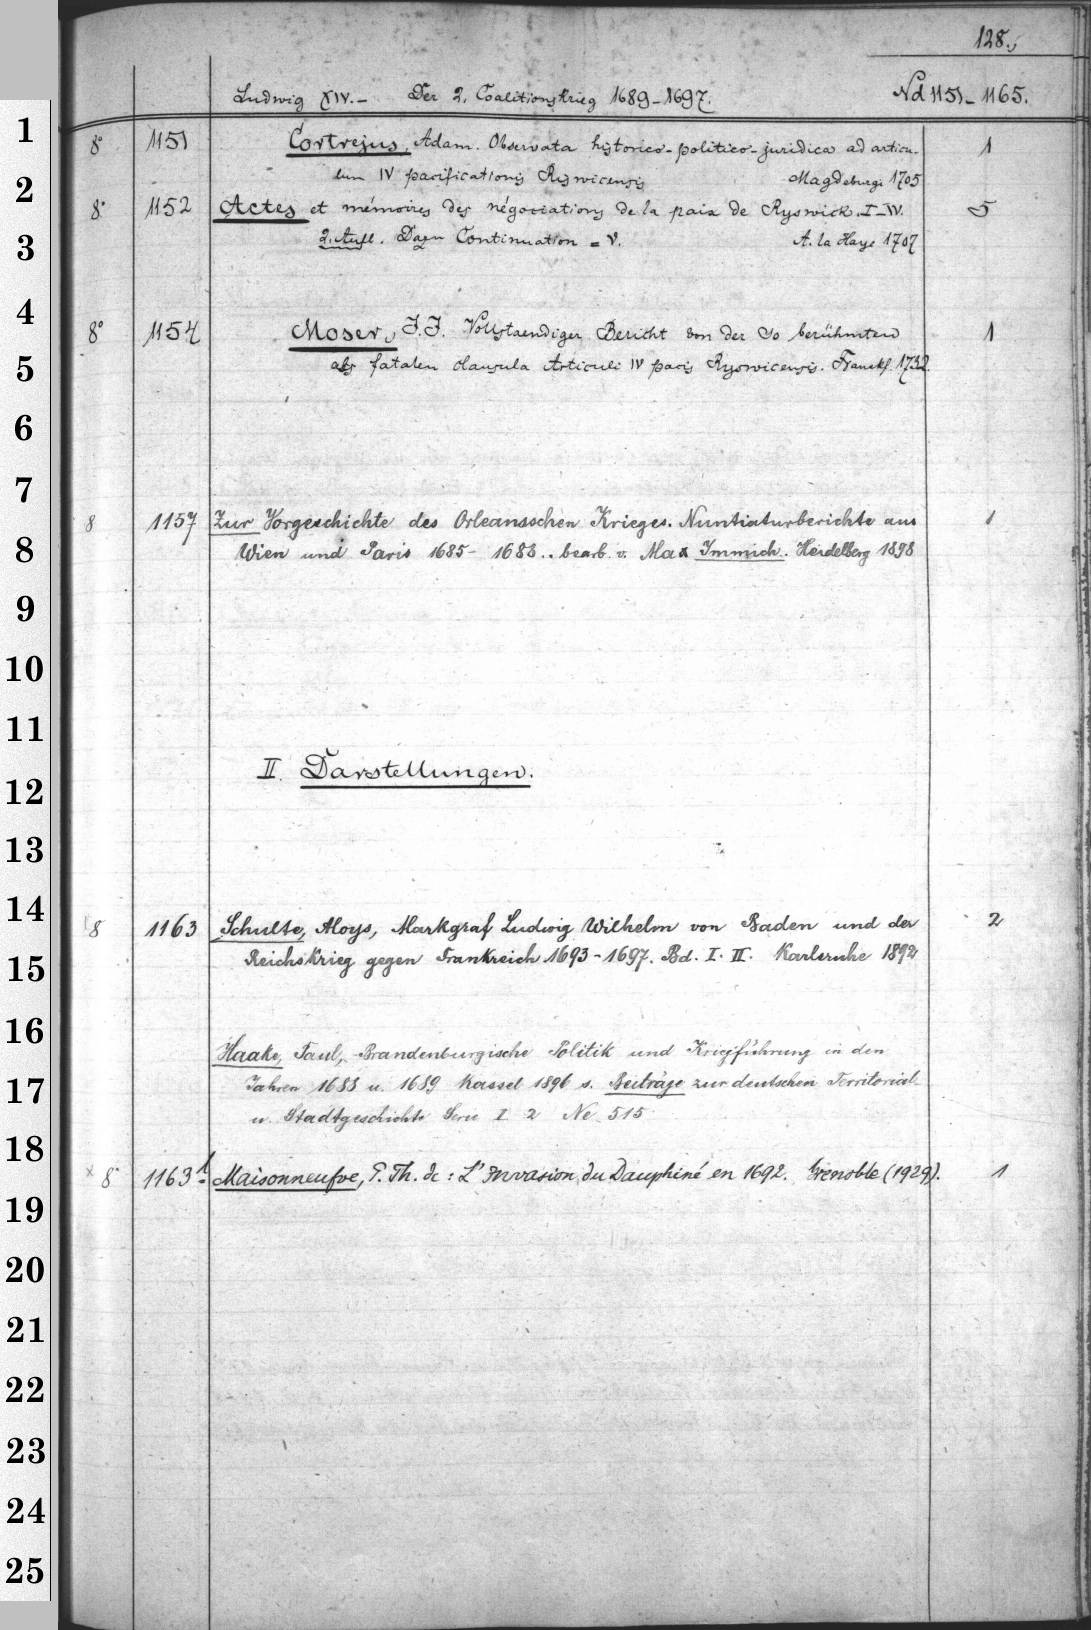 128.
Ludwig XIV. - Der 2. Coalitionskrieg 1689-1697. Nd 1151-1165.
1
8° 1151 Cortrejus, Adam. Observata historico-politico-juridica ad articu- 1
lum IV pacificationis Riswicensis Magdeburgi 1705
2
8° 1152 Actes et mémoires des négociations de la paix de Ryswick. I-IV. 5
2. Aufl. Dazu Continuation = V. A. la Haye 1707
3
4
8° 1154 Moser, J. J. Vollstaendiger Bericht von der so berühmten 1
als fatalen Clausula Articuli IV pacis Ryswicensis. Franckf. 1732.
5
6
7
8 1157 Zur Vorgeschichte des Orleansschen Krieges. Nuntiaturberichte aus 1
Wien und Paris 1685-1688.. bearb. v. Max Immich. Heidelberg 1898
8
9
10
11
II. Darstellungen.
12
13
14
8 1163 Schulte, Aloys, Markgraf Ludwig Wilhelm von Baden und der 2
Reichskrieg gegen Frankreich 1693-1697. Bd. I. II. Karlsruhe 1892
15
16
Haake, Paul, Brandenburgische Politik und Kriegführung in den
Jahren 1688 u. 1689 Kassel 1896 s. Beiträge zur deutschen Territorial-
17
u. Stadtgeschichte Serie I 2 Ne 515
18
x 8° 1163 1 Maisonneufve, P. Th. de: L'Invasion du Dauphiné en 1692. Grenoble (1929). 1
19
20
21
22
23
24
25